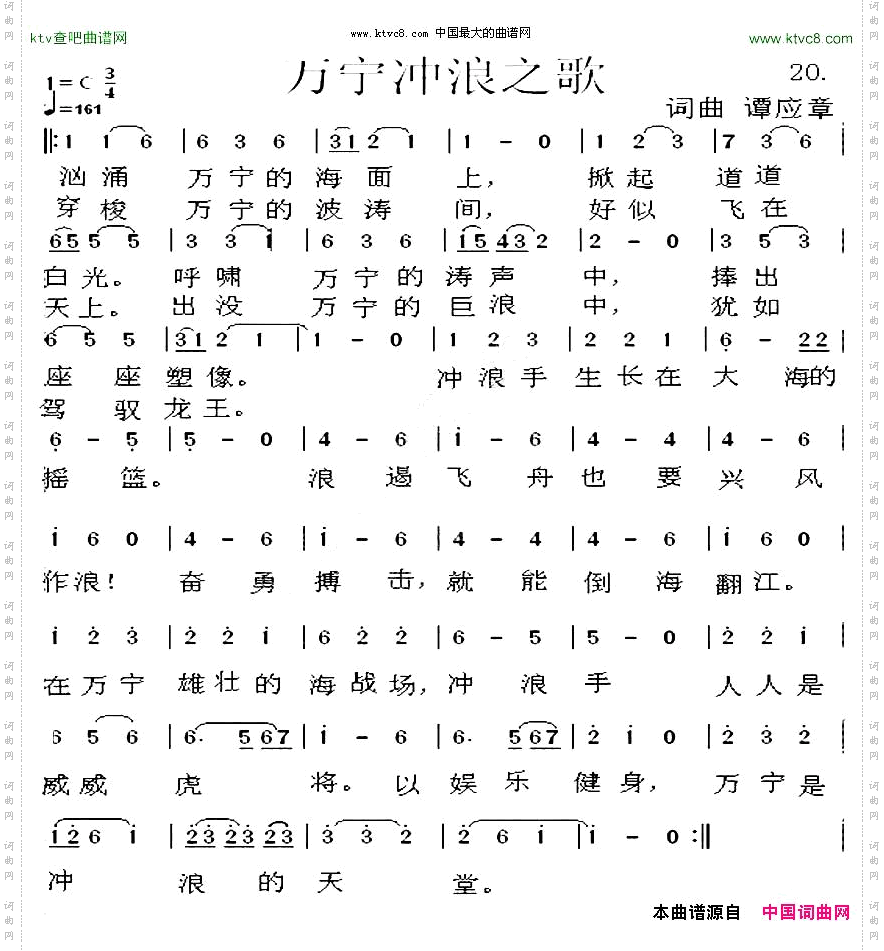 www.ktvc8.com 中国最大的曲谱网
ktv查吧曲谱网
www.ktvc8.com
万宁冲浪之歌
20.
1=C 3/4
♩=161
词曲 谭应章
‖:1 1 6 | 6 3 6 | 31 2 1 | 1 - 0 | 1 2 3 | 7 3 6 |
汹涌 万宁的海面 上， 掀起 道道
穿梭 万宁的波涛 间， 好似 飞在
65 5 5 | 3 3 1 | 6 3 6 | 15 43 2 | 2 - 0 | 3 5 3 |
白光。 呼啸 万宁的涛声 中， 捧出
天上。 出没 万宁的巨浪 中， 犹如
6 5 5 | 31 2 1 | 1 - 0 | 1 2 3 | 2 2 1 | 6̣ - 22 |
座座塑像。 冲浪手生长在大海的
驾驭龙王。
6̣ - 5̣ | 5̣ - 0 | 4 - 6 | i - 6 | 4 - 4 | 4 - 6 |
摇篮。 浪遏飞舟也要兴风
i 6 0 | 4 - 6 | i - 6 | 4 - 4 | 4 - 6 | i 6 0 |
作浪！ 奋勇搏击，就能倒海翻江。
i 2̇ 3̇ | 2̇ 2̇ i | 6 2̇ 2̇ | 6 - 5 | 5 - 0 | 2̇ 2̇ i |
在万宁雄壮的海战场，冲浪手 人人是
6 5 6 | 6. 5 67 | i - 6 | 6. 567 | 2̇ i 0 | 2̇ 3̇ 2̇ |
威威虎 将。以娱乐健身，万宁是
i2̇ 6 i | 2̇3̇ 2̇3̇ 2̇3̇ | 3̇ 3̇ 2̇ | 2̇ 6 i | i - 0 :‖
冲浪的天堂。
本曲谱源自 中国词曲网